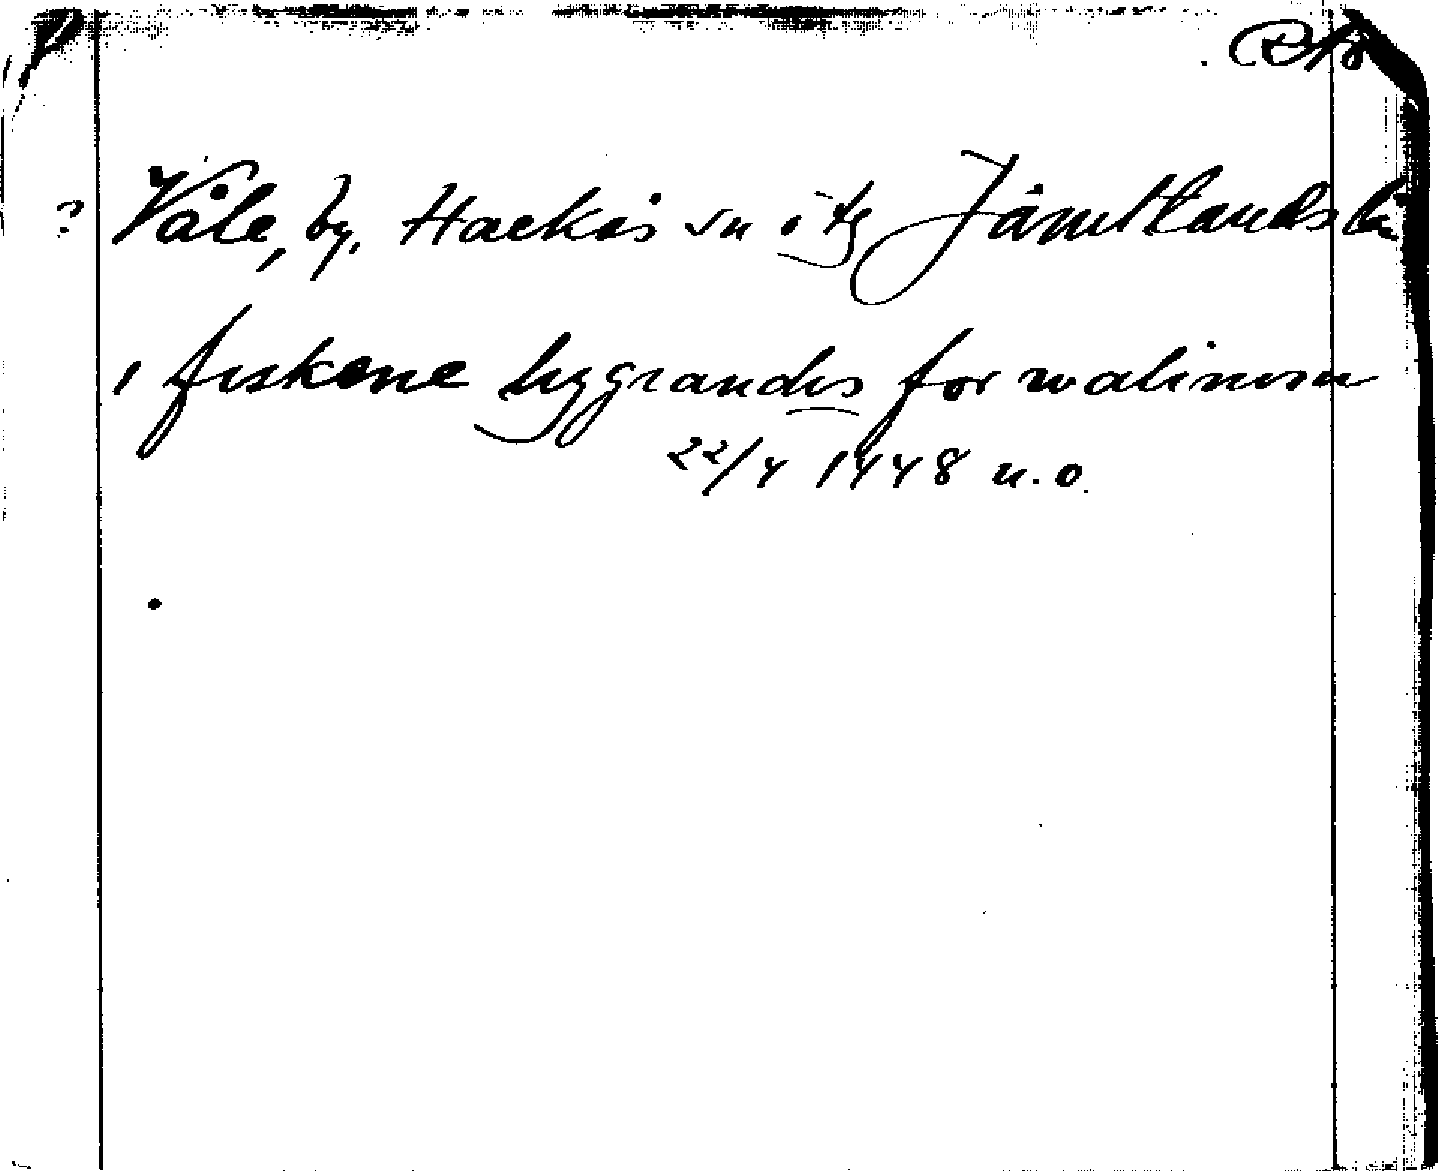 ?
Våle, by, Hackås sn ö tg Jämtlands län
i fiskene liggiandis for walinom
22/4 1448 u. o.